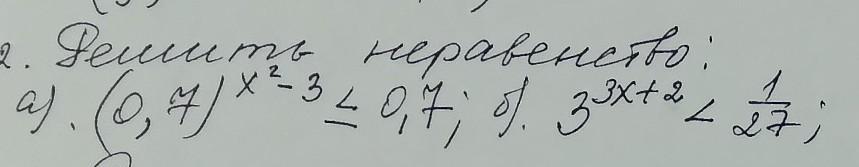 2. Решить неравенство:
а). (0,7)^{x²-3} ≤ 0,7; б). 3^{3x+2} < 1/27;